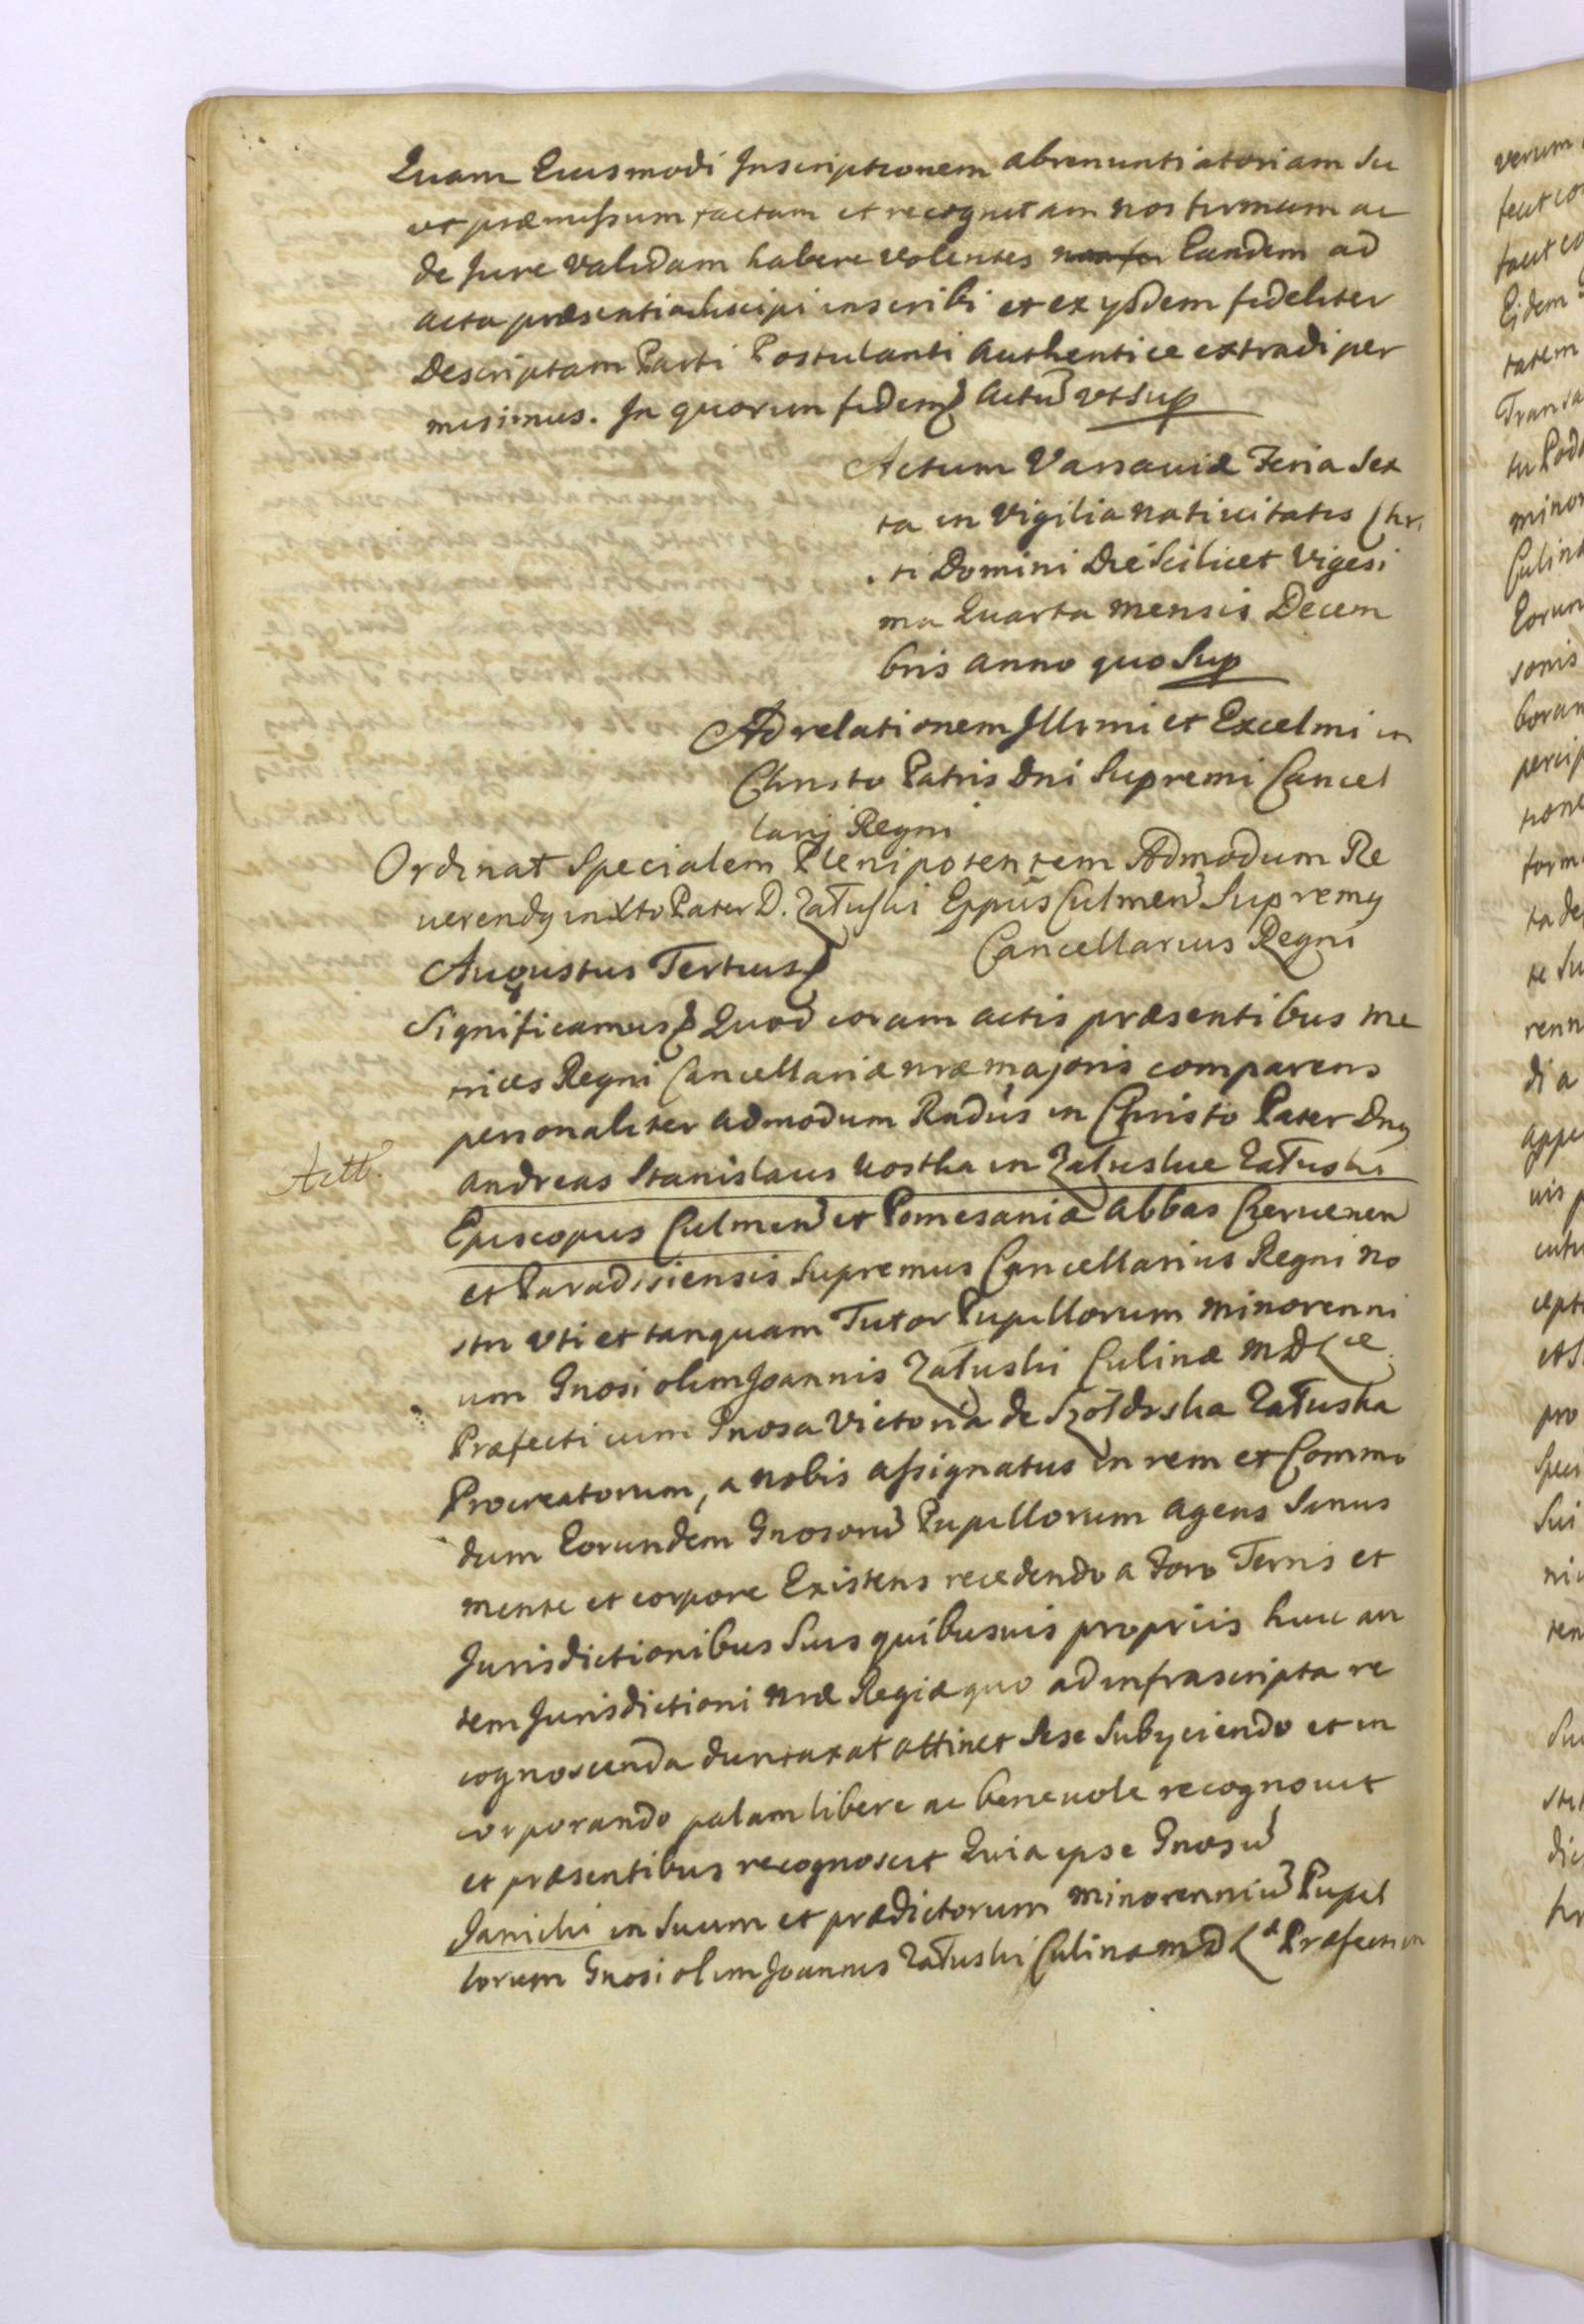 Quam Eiusmodi Inscriptionem abrenuntiatoriam Su
ut præmissum factam et recognitam nos firmam ac
de Jure validam habere volentes Eandem ad
acta præsentia suscipi inscribi et ex ysdem fideliter
Descriptam Parti Postulanti Authentice extradi per
misimus. In quorum fidem Actu ut sup
Actum Varsaviæ Feria Sex
ta in Vigilia nativitatis Chri
sti Domini Die Scilicet Vigesi
ma Quarta mensis Decem
bris Anno quo Sup
Ad relationem Illrmi et Excelmi in
Christo Patris Dni Supremi Cancel
larij Regni
Ordinat Specialem Plenipotentem Admodum Re
verendy in Xto Pater D. Załuski Eppus Culmen Supremy
Cancellarius Regni
Augustus Tertius
Significamus Quod coram actis præsentibus me
trices Regni Cancellariæ nræ majoris comparens
personaliter admodum Rndus in Christo Pater Dny
Actt.
Andreas Stanislaus Kostka in Załuskie Załuski
Episcopus Culmen et Pomesaniæ Abbas Czervenen
et Paradisiensis Supremus Cancellarius Regni no
stri Uti et tanquam Tutor Pupillorum minorenni
um Gnosi olim Joannis Załuski Culinæ M D L ce
Præfecti cum Gnosa Victoria de Szołdrska Załuska
Procreatorum, a nobis assignatus in rem et Commo
dum Eorundem Gnosoru Pupillorum agens Sanus
mente et corpore Existens recedendo a Foro Terris et
Jurisdictionibus Suis quibusvis propriis huic au
tem Jurisdictioni nræ Regiæ quo ad infrascripta re
cognoscenda duntaxat attinet Sese Subyciendo et in
corporando palam libere ac benevole recognovit
et præsentibus recognoscit Quia ipse Gnosu
Janicki in Suum et prædictorum minorenniu Pupil
lorum Gnosi olim Joannis Załuski Culinæ M D L Præfecti